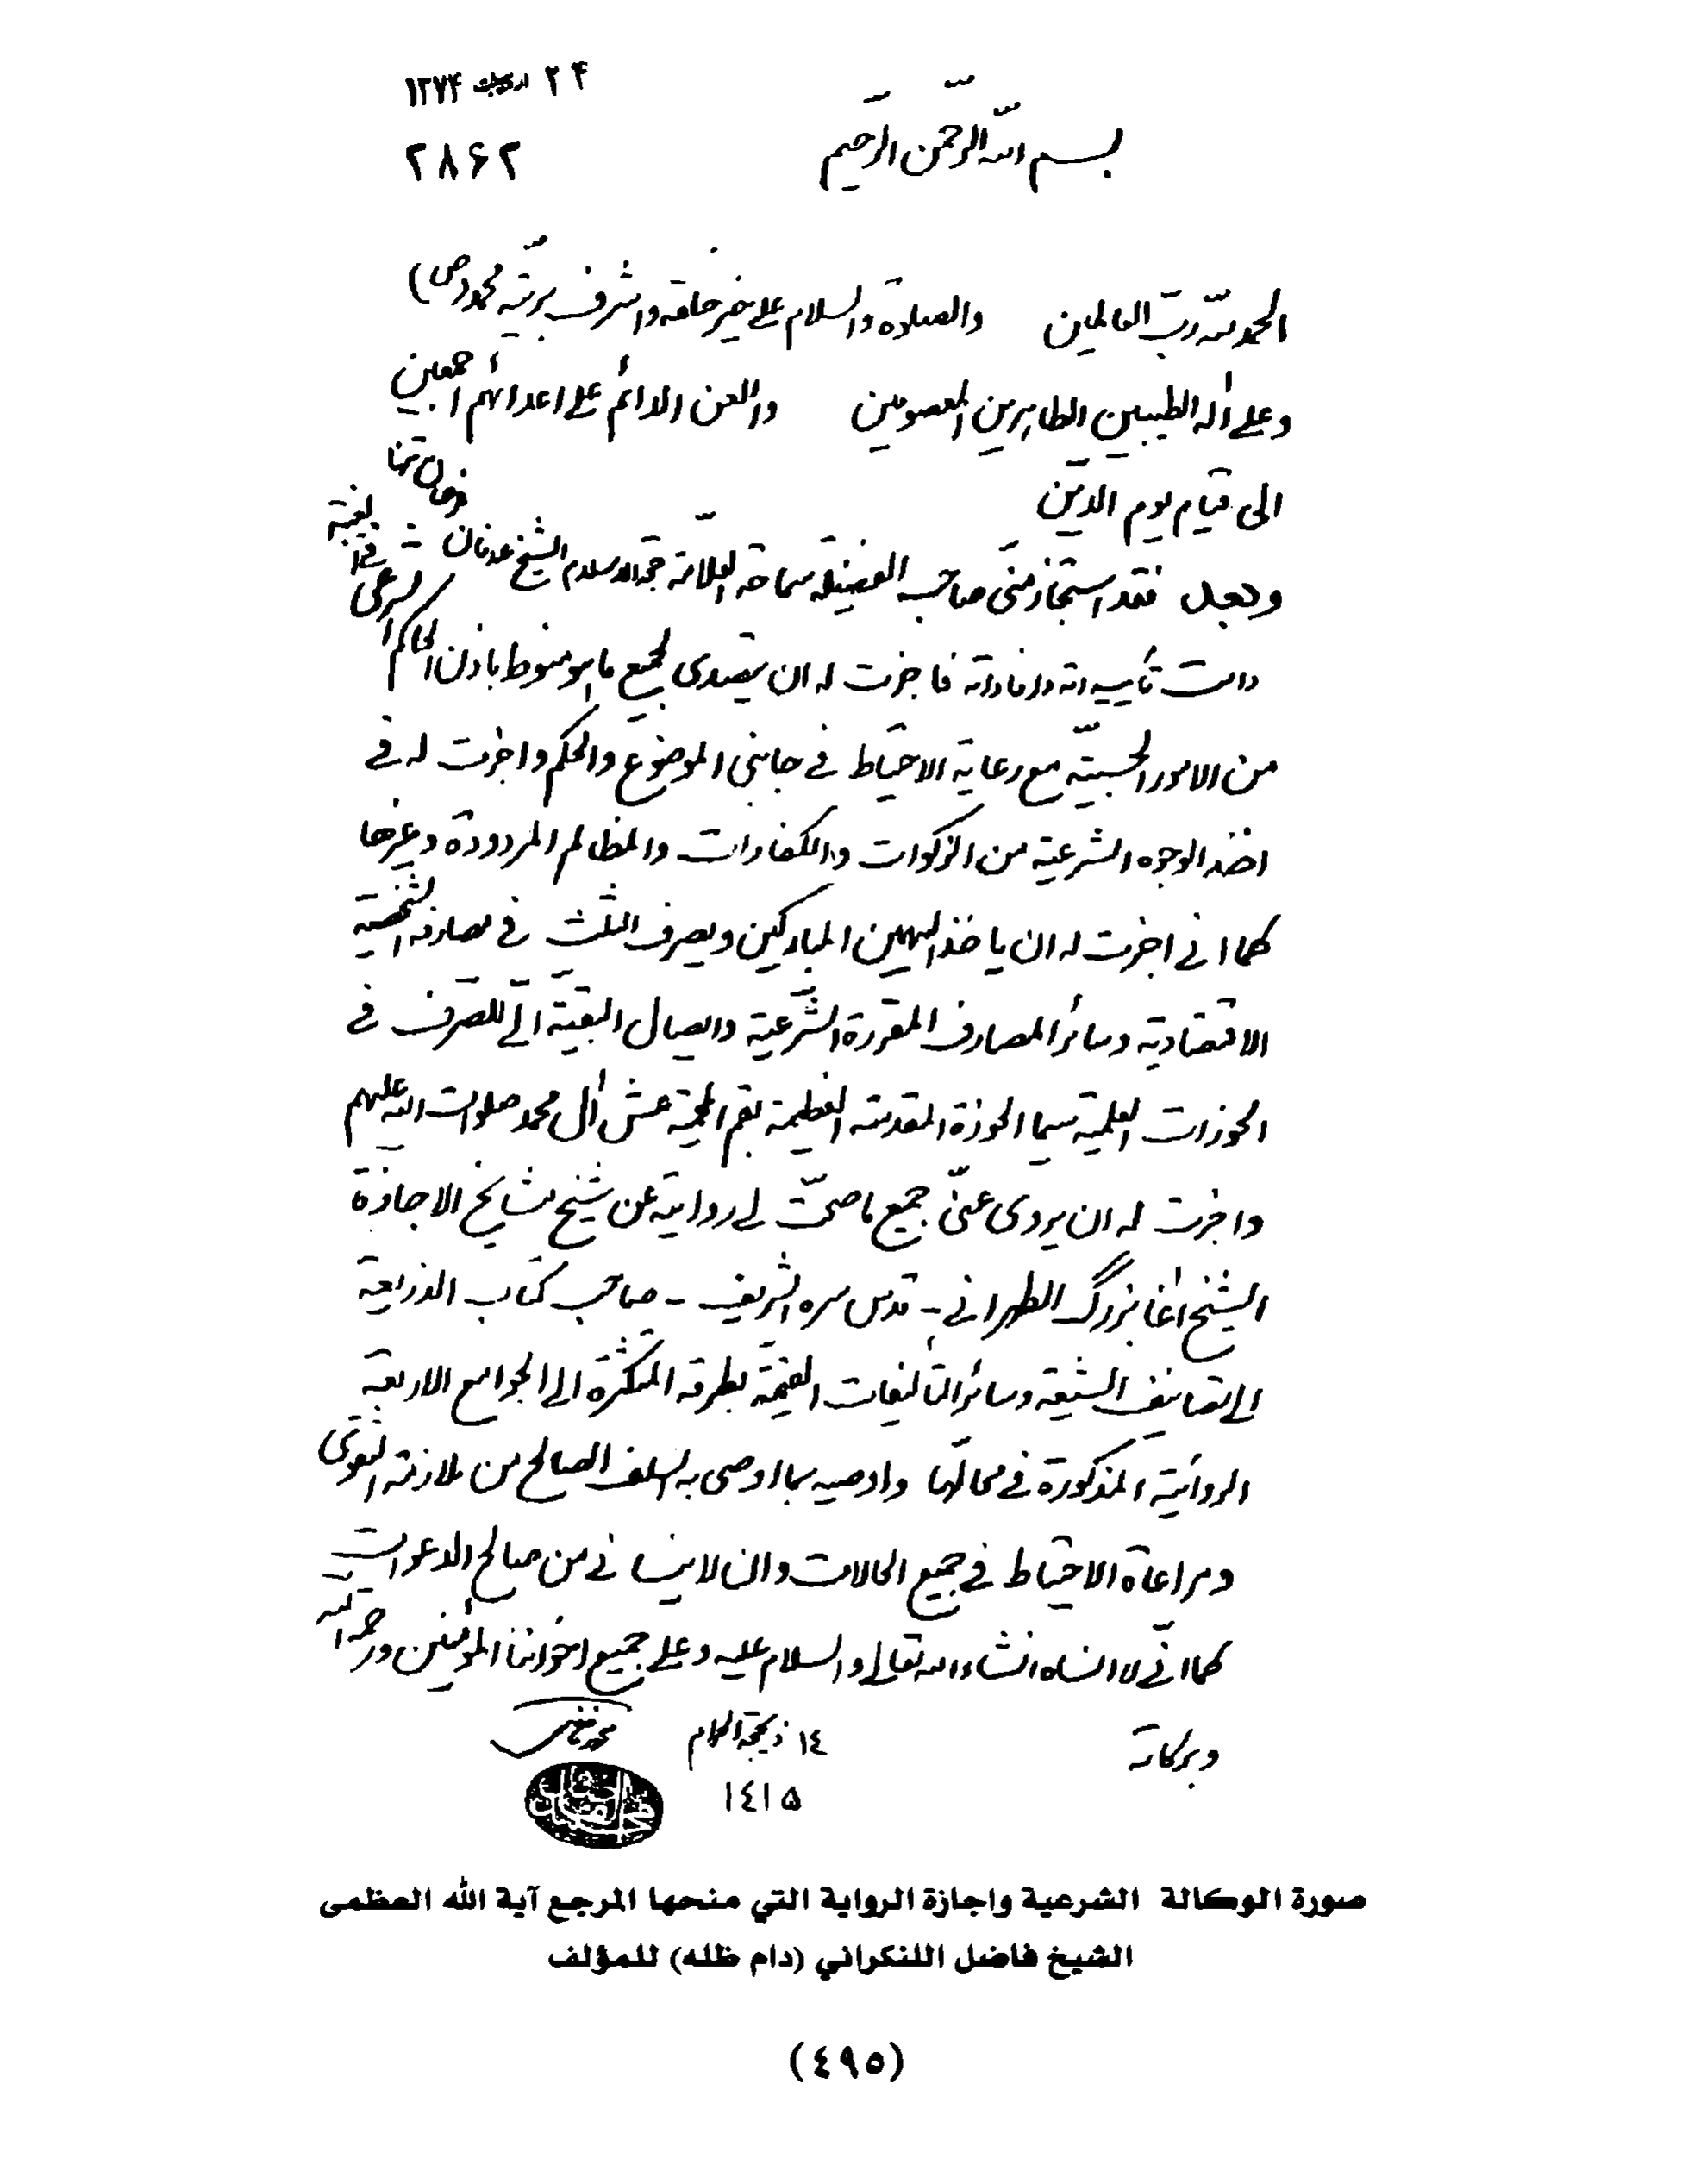 ۲۴ اردیبهشت ۱۳۷۴
۲۸۶۲
بسم الله الرّحمن الرّحیم
الحمد لله ربّ العالمین والصلاة والسلام علی خیر خلقه واشرف بریّته محمد (ص)
وعلی آله الطیبین الطاهرین المعصومین واللعن الدائم علی اعدائهم اجمعین
الی قیام یوم الدّین
وبعد فقد استجاز منّی صاحب الفضیلة سماحة العلّامة حجة الاسلام الشیخ عدنان فرحان
دامت تأییداته وافاداته فاجزت له ان یتصدی لجمیع ما هو منوط باذن الحاکم الشرعی
من الامور الحسبیّة مع رعایة الاحتیاط فی جانبی الموضوع والحکم واجزت له فی
اخذ الوجوه الشرعیة من الزکوات والکفارات والمظالم المردودة وغیرها
کما انی اجزت له ان یاخذ السهمین المبارکین ویصرف الثلث فی مصارفه الشخصیة
الاقتصادیة وسائر المصارف المقررة الشّرعیة وایصال البقیّة الیّ للصرف فی
الحوزات العلمیة سیما الحوزة المقدسة العظیمة بقم المحمیّة عش آل محمد صلوات الله علیهم
واجزت له ان یروی عنّی جمیع ما صحّت لی روایته عن شیخ مشایخ الاجازة
الشیخ آغا بزرگ الطهرانی - قدس سره الشریف - صاحب کتاب الذریعة
الی تصانیف الشیعة وسائر التألیفات القیّمة بطرقه المتکثّرة الی الجوامع الاربعة
الروائیة المذکورة فی محالّها واوصیه بما اوصی به السلف الصالح من ملازمة التقوی
ومراعاة الاحتیاط فی جمیع الحالات وان لا ینسانی من صالح الدعوات
کما انّی لا انساه انشاء الله تعالی والسلام علیه وعلی جمیع اخواننا المؤمنین ورحمة الله
وبرکاته ١٤ ذیحجة الحرام
١٤١٥
صورة الوكالة الشرعية واجازة الرواية التي منحها المرجع آية الله العظمى
الشيخ فاضل اللنكراني (دام ظله) للمؤلف
(٤٩٥)